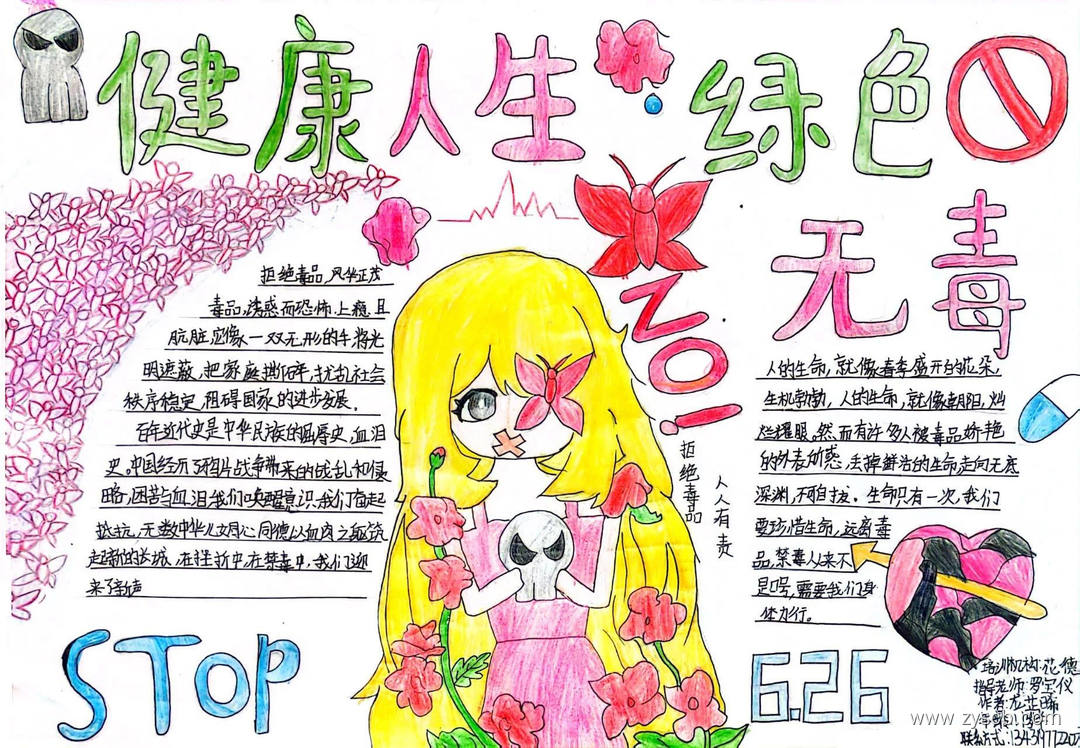 健康人生 绿色
无毒
NO!
拒绝毒品,风华正茂
毒品,诱惑而恐怖,上瘾,且
肮脏,它像一双无形的手将光
明遮蔽,把家庭撕碎,扰乱社会
秩序稳定,阻碍国家的进步发展。
百年近代史是中华民族的屈辱史,血泪
史。中国经历了鸦片战争带来的战乱和侵
略,困苦与血泪我们唤醒意识,我们奋起
抵抗,无数中华儿女同心同德以血肉之躯筑
起新的长城,在挫折中,在禁毒中,我们迎
来了新声
人的生命,就像春季盛开的花朵,
生机勃勃,人的生命,就像朝阳,灿
烂耀眼。然而有许多人被毒品娇艳
的外表所惑,丢掉鲜活的生命走向无底
深渊,不可自拔。生命只有一次,我们
要珍惜生命,远离毒
品,禁毒从来不
是口号,需要我们身
体力行。
拒绝毒品
人人有责
STOP
6.26
培训机构:德
指导老师:罗宝仪
作者:龙芷晞
联系方式:
www.zy
.com